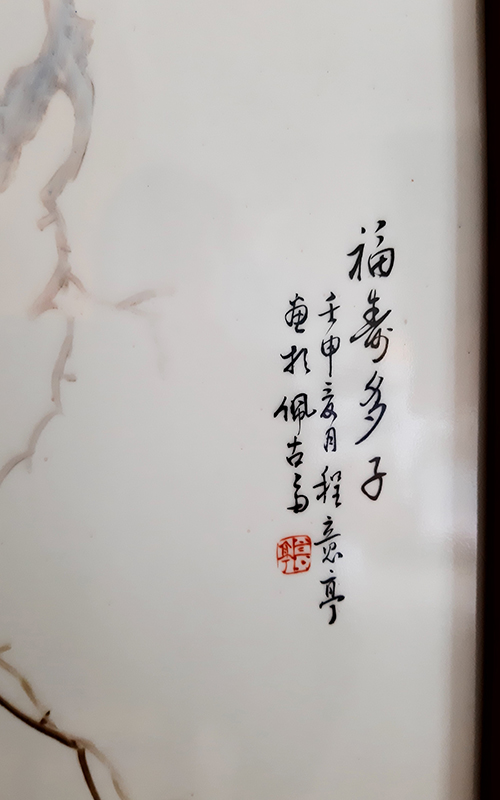 福寿多子
壬申夏月程意亭
画於佩古斋
意亭